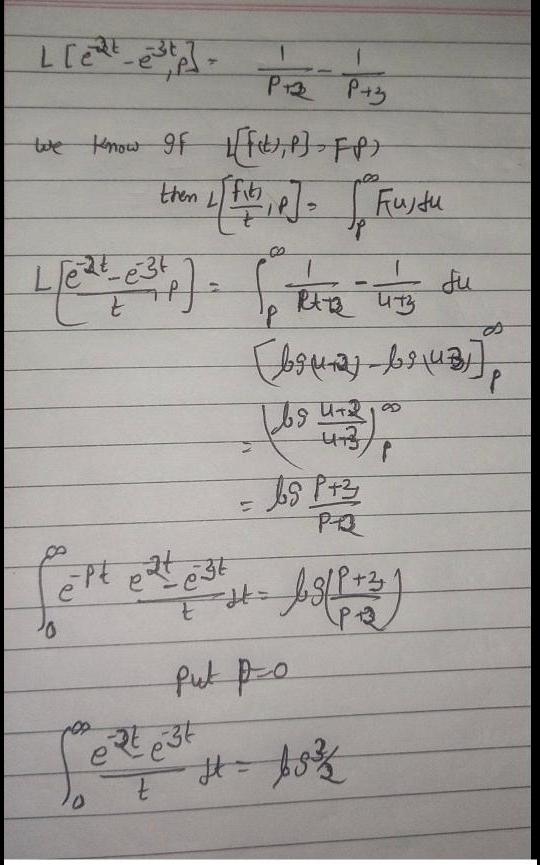 L[e^-2t - e^-3t, p] = 1/(p+2) - 1/(p+3)
We know If L[f(t), p] = F(p)
then L[f(t)/t, p] = ∫_p^∞ F(u) du
L[(e^-2t - e^-3t)/t, p] = ∫_p^∞ 1/(u+2) - 1/(u+3) du
[log(u+2) - log(u+3)]_p^∞
= (log (u+2)/(u+3))_p^∞
= log (p+3)/(p+2)
∫_0^∞ e^-pt (e^-2t - e^-3t)/t dt = log((p+3)/(p+2))
put p=0
∫_0^∞ (e^-2t - e^-3t)/t dt = log 3/2